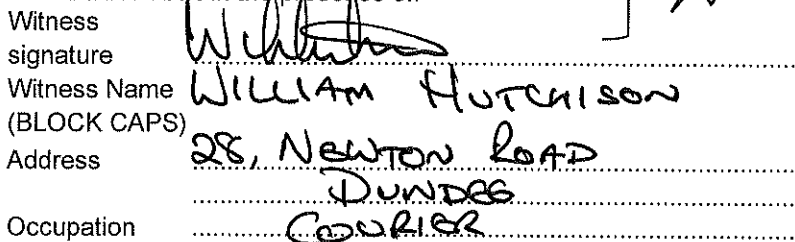 Witness
signature
Witness Name WILLIAM HUTCHISON
(BLOCK CAPS)
Address 28, NEWTON ROAD
DUNDEE
Occupation COURIER